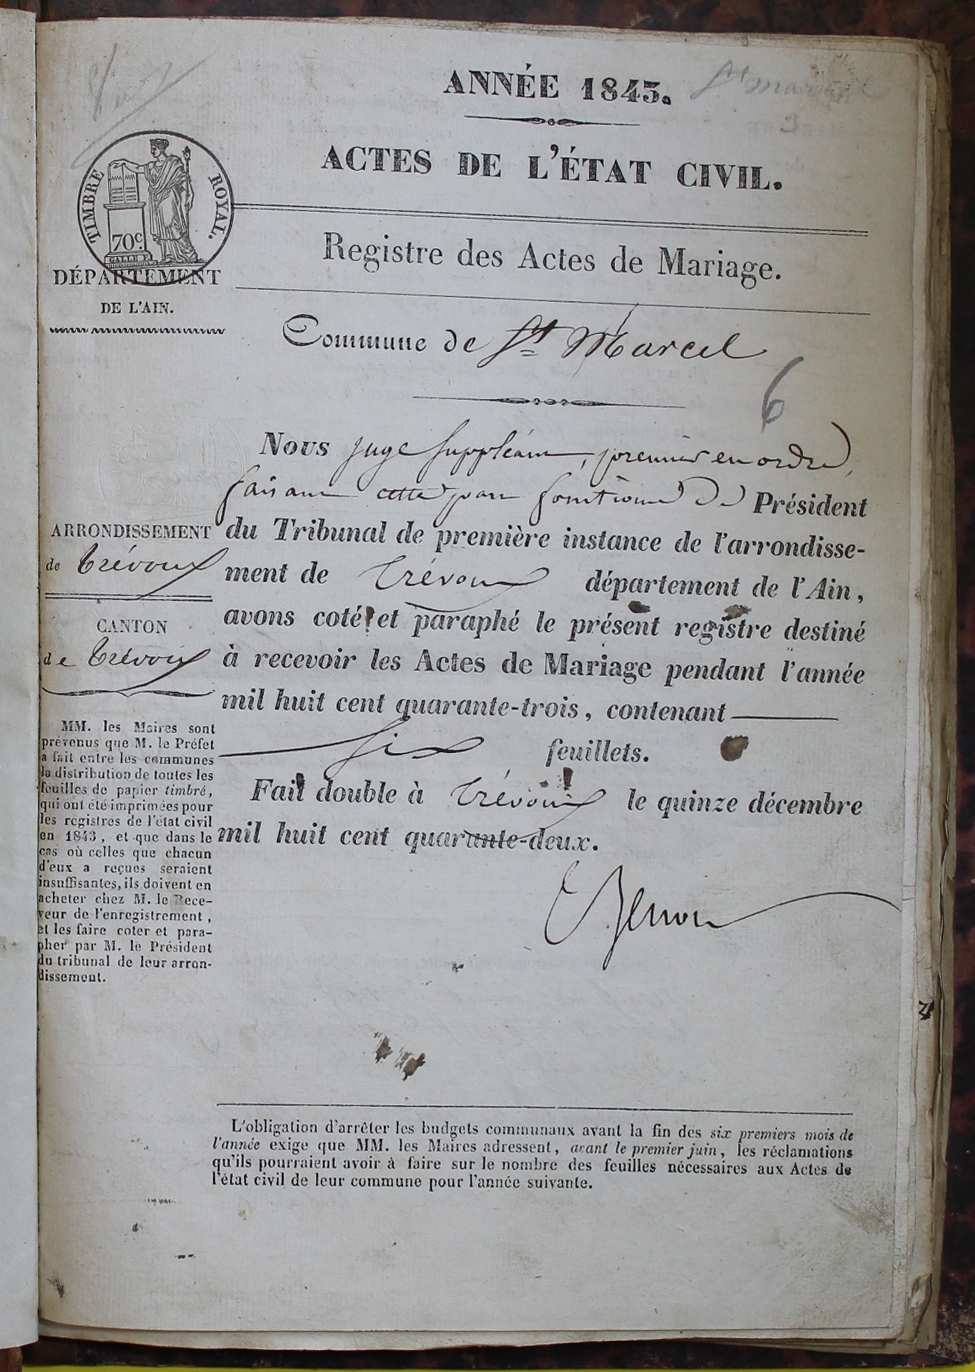 ANNÉE 1843.
St marcel
3
ACTES DE L'ÉTAT CIVIL.
TIMBRE ROYAL.
70c
DÉPARTEMENT
DE L'AIN.
Registre des Actes de Mariage.
Commune de St Marcel
6
Nous juge suppléant, premier en ordre,
faisant cette part fonctions de Président
du Tribunal de première instance de l'arrondisse-
ment de Trévoux département de l'Ain,
avons coté et paraphé le présent registre destiné
à recevoir les Actes de Mariage pendant l'année
mil huit cent quarante-trois, contenant
six feuillets.
Fait double à Trévoux le quinze décembre
mil huit cent quarante-deux.
ARRONDISSEMENT
de Trévoux
CANTON
de Trévoux
MM. les Maires sont
prévenus que M. le Préfet
a fait entre les communes
la distribution de toutes les
feuilles de papier timbré,
qui ont été imprimées pour
les registres de l'état civil
en 1843, et que dans le
cas où celles que chacun
d'eux a reçues seraient
insuffisantes, ils doivent en
acheter chez M. le Rece-
veur de l'enregistrement,
et les faire coter et para-
pher par M. le Président
du tribunal de leur arron-
dissement.
L'obligation d'arrêter les budgets communaux avant la fin des six premiers mois de
l'année exige que MM. les Maires adressent, avant le premier juin, les réclamations
qu'ils pourraient avoir à faire sur le nombre des feuilles nécessaires aux Actes de
l'état civil de leur commune pour l'année suivante.